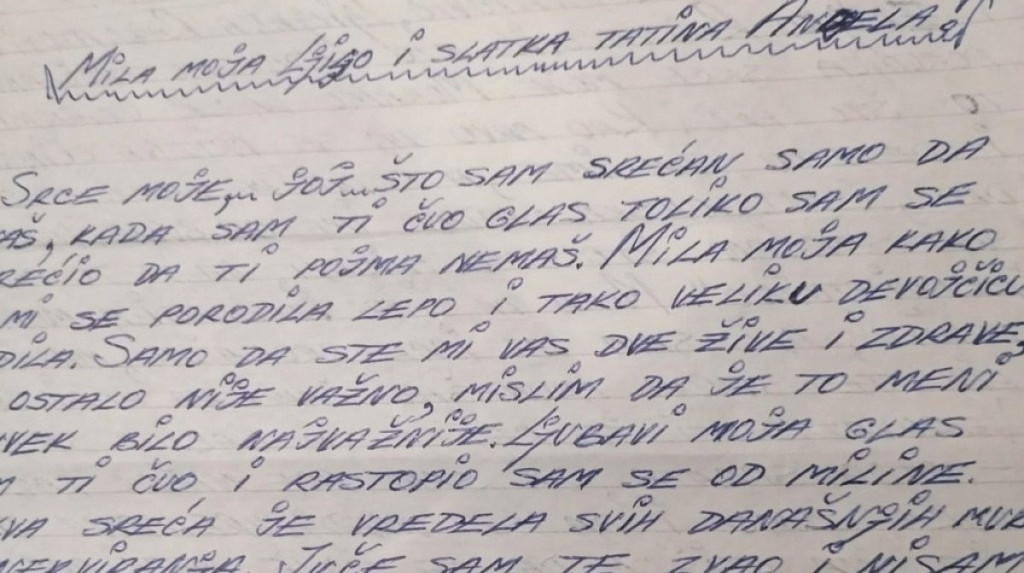 MILA MOJA LJIGO I SLATKA TATINA ANĐELA
SRCE MOJE,,, JOJ... ŠTO SAM SREĆAN SAMO DA
AŠ, KADA SAM TI ČUO GLAS TOLIKO SAM SE
REĆIO DA TI POJMA NEMAŠ. MILA MOJA KAKO
MI SE PORODILA LEPO I TAKO VELIKU DEVOJČICU
DILA. SAMO DA STE MI VAS DVE ŽIVE I ZDRAVE,
OSTALO NIJE VAŽNO, MISLIM DA JE TO MENI
VEK BILO NAJVAŽNIJE. LJUBAVI MOJA GLAS
M TI ČUO I RASTOPIO SAM SE OD MILINE.
VA SREĆA JE VREDELA SVIH DANAŠNJIH MUK
NERVIRANJA. JUČE SAM TE ZVAO I NISAM